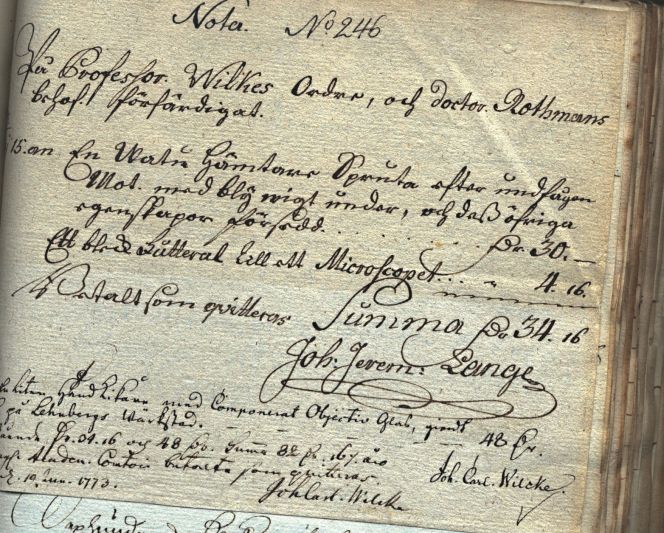 Nota. No 246
På Professor. Wilkes Ordre, och Doctor. Rothmans
behof. Förfärdigat.
15. En Watu Hämtare Spruta efter undfågen
Mot. med blÿ wigt under, och deß öfriga
egenskapor försedd. . . . . . . . dr 30. —
Ett bleck Futteral till ett Microscopet . . . " 4. 16.
Betalt som qvitteras Summa dr 34. 16
Joh: Jerem: Lange
liten med Componerat Objectiv Glas, giordt
på Lehnbergs Wärkstad. 48 dr.
34.16 och 48 Summa 82 16
Contoir betalte som quiteras. Joh. Carl. Wilcke.
10 1773. Joh Carl. Wilcke